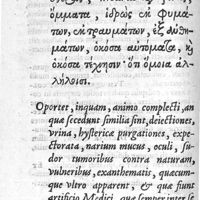 ὄμματα, ἱδρὼς ἐκ φυμά
των, ἐκ τραυμάτων, ἐξ
μάτων, ὁκόσα αὐτόματα, κ
ὁκόσα τέχνησιν· ὅτι ὅμοια ἀλ
λήλοισι.
Oportet, inquam, animo complecti, an
quæ secedunt similia sint, deiectiones,
vrina, hystericæ purgationes, expe-
ctorata, narium mucus, oculi, su-
dor tumoribus contra naturam,
vulneribus, exanthematis, quacum-
que vltro apparent, & quæ fiunt
artificio Medici, quæ semper inter se